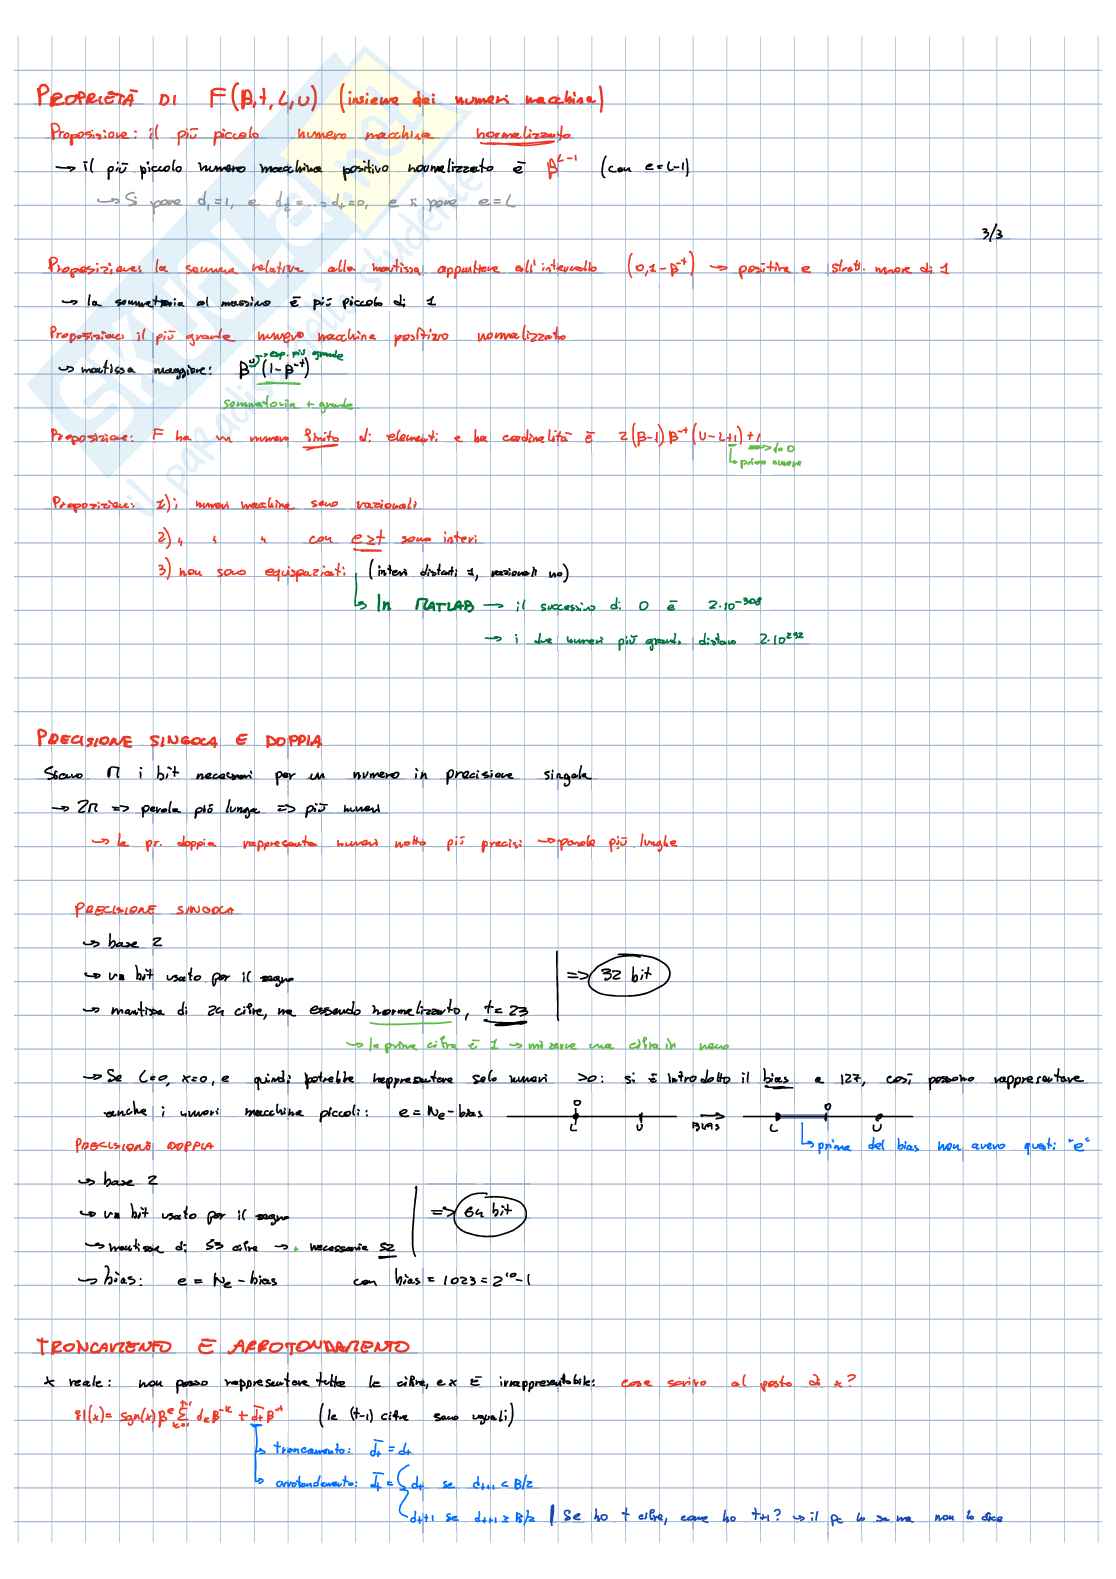 PROPRIETÀ DI F(β,t,L,U) (insieme dei numeri macchina)
Proposizione: il più piccolo numero macchina normalizzato
→ il più piccolo numero macchina positivo normalizzato è β^(L-1) (con e=L-1)
→ Si pone d₁=1, e d₂=...=d_t=0, e si pone e=L
3/3
Proposizione: la somma relativa alla mantissa appartiene all'intervallo (0,1-β^-t) → positiva e strett. minore di 1
→ la sommatoria al massimo è più piccolo di 1
Proposizione: il più grande numero macchina positivo normalizzato
→ esp. più grande
→ mantissa maggiore: β^U (1-β^-t)
sommatoria + grande
Proposizione: F ha un numero finito di elementi e ha cardinalità è 2(β-1)β^-t(U-L+1)+1
→ lo 0
↳ primo numero
Proposizione: 1) i numeri macchina sono razionali
2) " " " con e≥t sono interi
3) non sono equispaziati (interi distanti 1, razionali no)
↳ In MATLAB → il successivo di 0 è 2·10^-308
→ i due numeri più grandi distano 2·10^292
PRECISIONE SINGOLA E DOPPIA
Siano M i bit necessari per un numero in precisione singola
→ 2M => parola più lunga => più numeri
→ la pr. doppia rappresenta numeri molto più precisi → parole più lunghe
PRECISIONE SINGOLA
→ base 2
→ un bit usato per il segno
=> 32 bit
→ mantissa di 24 cifre, ma essendo normalizzato, t=23
→ la prima cifra è 1 → mi serve una cifra in meno
→ Se L=0, x=0, e quindi potrebbe rappresentare solo numeri >0: si è introdotto il bias a 127, così possono rappresentare
anche i numeri macchina piccoli: e = Ne - bias
0 L U BIAS L 0 U
↳ prima del bias non avevo questi "e"
PRECISIONE DOPPIA
→ base 2
→ un bit usato per il segno
=> 64 bit
→ mantissa di 53 cifre → necessarie 52
→ bias: e = Ne - bias con bias = 1023 = 2^10-1
TRONCAMENTO E ARROTONDAMENTO
x reale: non posso rappresentare tutte le cifre, e x è irrappresentabile: cosa scrivo al posto di x?
fl(x) = sgn(x) β^e Σ_{k=1}^{t-1} d_k β^-k + d̄_t β^-t (le (t-1) cifre sono uguali)
↳ troncamento: d̄_t = d_t
↳ arrotondamento: d̄_t = { d_t se d_t+1 < β/2
d_t+1 se d_t+1 ≥ β/2 | Se ho t cifre, come ho t+1? → il pc lo sa ma non lo dice
SKUOLA.net
il paradiso dello studente